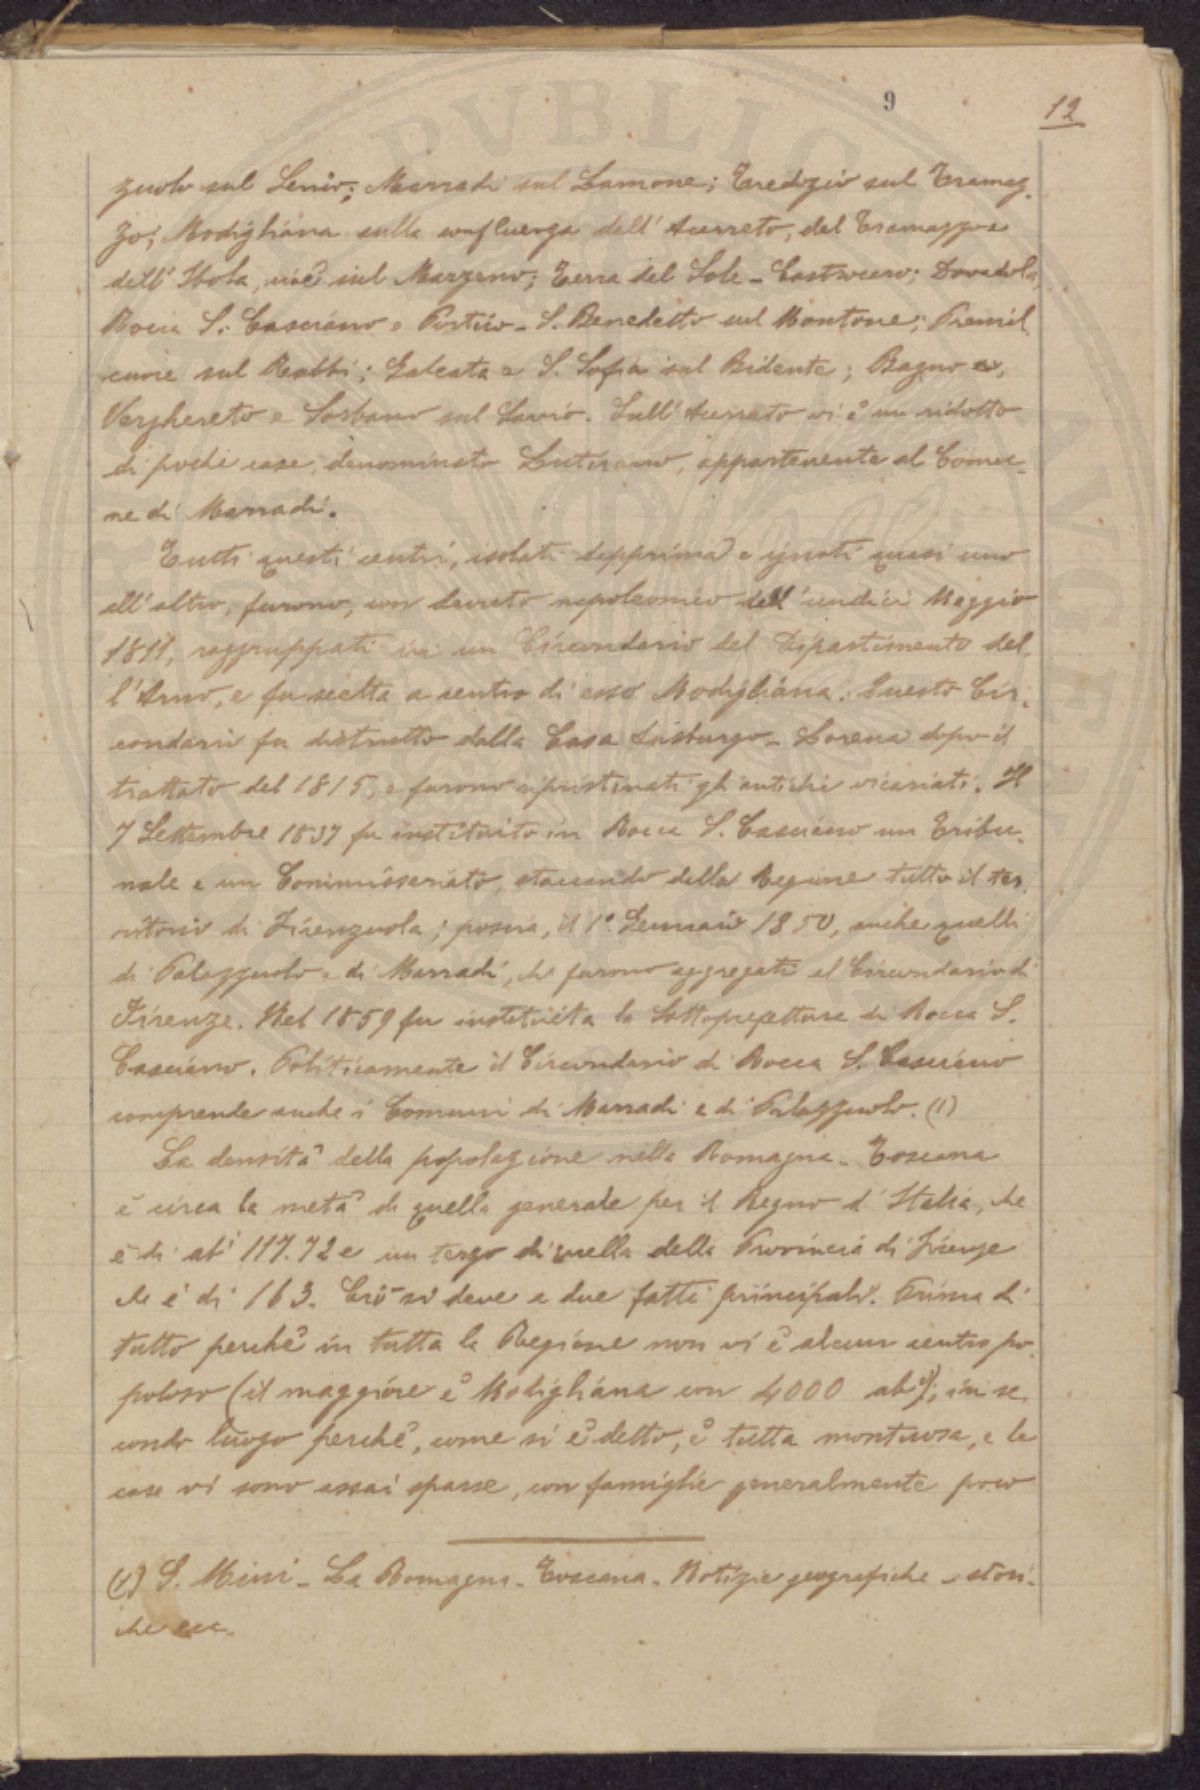 9
12
zuolo sul Senio; Marradi sul Lamone; Tredozio sul Tramaz-
zo; Modigliana sulla confluenza dell'Acerreto, del Tramazzo e
dell'Ibola, cioè sul Marzeno; Terra del Sole - Castrocaro; Dovadola,
Rocca S. Casciano e Portico - S. Benedetto sul Montone; Premil
cuore sul Rabbi; Galeata e S. Sofia sul Bidente; Bagno
Verghereto e Sorbano sul Savio. Sull'Acerreto vi è un ridotto
di poche case, denominato Lutirano, appartenente al Comu-
ne di Marradi.
Tutti questi centri, isolati dapprima e ignoti quasi uno
all'altro, furono, con decreto napoleonico dell'undici Maggio
1811, raggruppati in un Circondario del Dipartimento del-
l'Arno, e fu scelta a centro di esso Modigliana. Questo Cir-
condario fu distrutto dalla Casa Ausburgo - Lorena dopo il
trattato del 1815, e furono ripristinati gli antichi vicariati. Il
7 Settembre 1837 fu instituito in Rocca S. Casciano un Tribu-
nale e un Commissariato, staccando dalla Regione tutto il ter-
ritorio di Firenzuola; poscia, il 1° Gennaio 1850, anche quelli
di Palazzuolo e di Marradi, che furono aggregati al Circondario di
Firenze. Nel 1859 fu instituita la Sottoprefettura di Rocca S.
Casciano. Politicamente il Circondario di Rocca S. Casciano
comprende anche i Comuni di Marradi e di Palazzuolo. (1)
La densità della popolazione nella Romagna - Toscana
è circa la metà di quella generale per il Regno d'Italia, che
è di ab.i 117.72 e un terzo di quella della Provincia di Firenze
che è di 163. Ciò si deve a due fatti principali. Prima di
tutto perchè in tutta la Regione non vi è alcun centro po-
poloso (il maggiore è Modigliana con 4000 ab.i); in se
condo luogo perchè, come si è detto, è tutta montuosa, e le
case vi sono assai sparse, con famiglie generalmente poco
(1) G. Mini - La Romagna - Toscana - Notizie geografiche - stori-
che ecc.